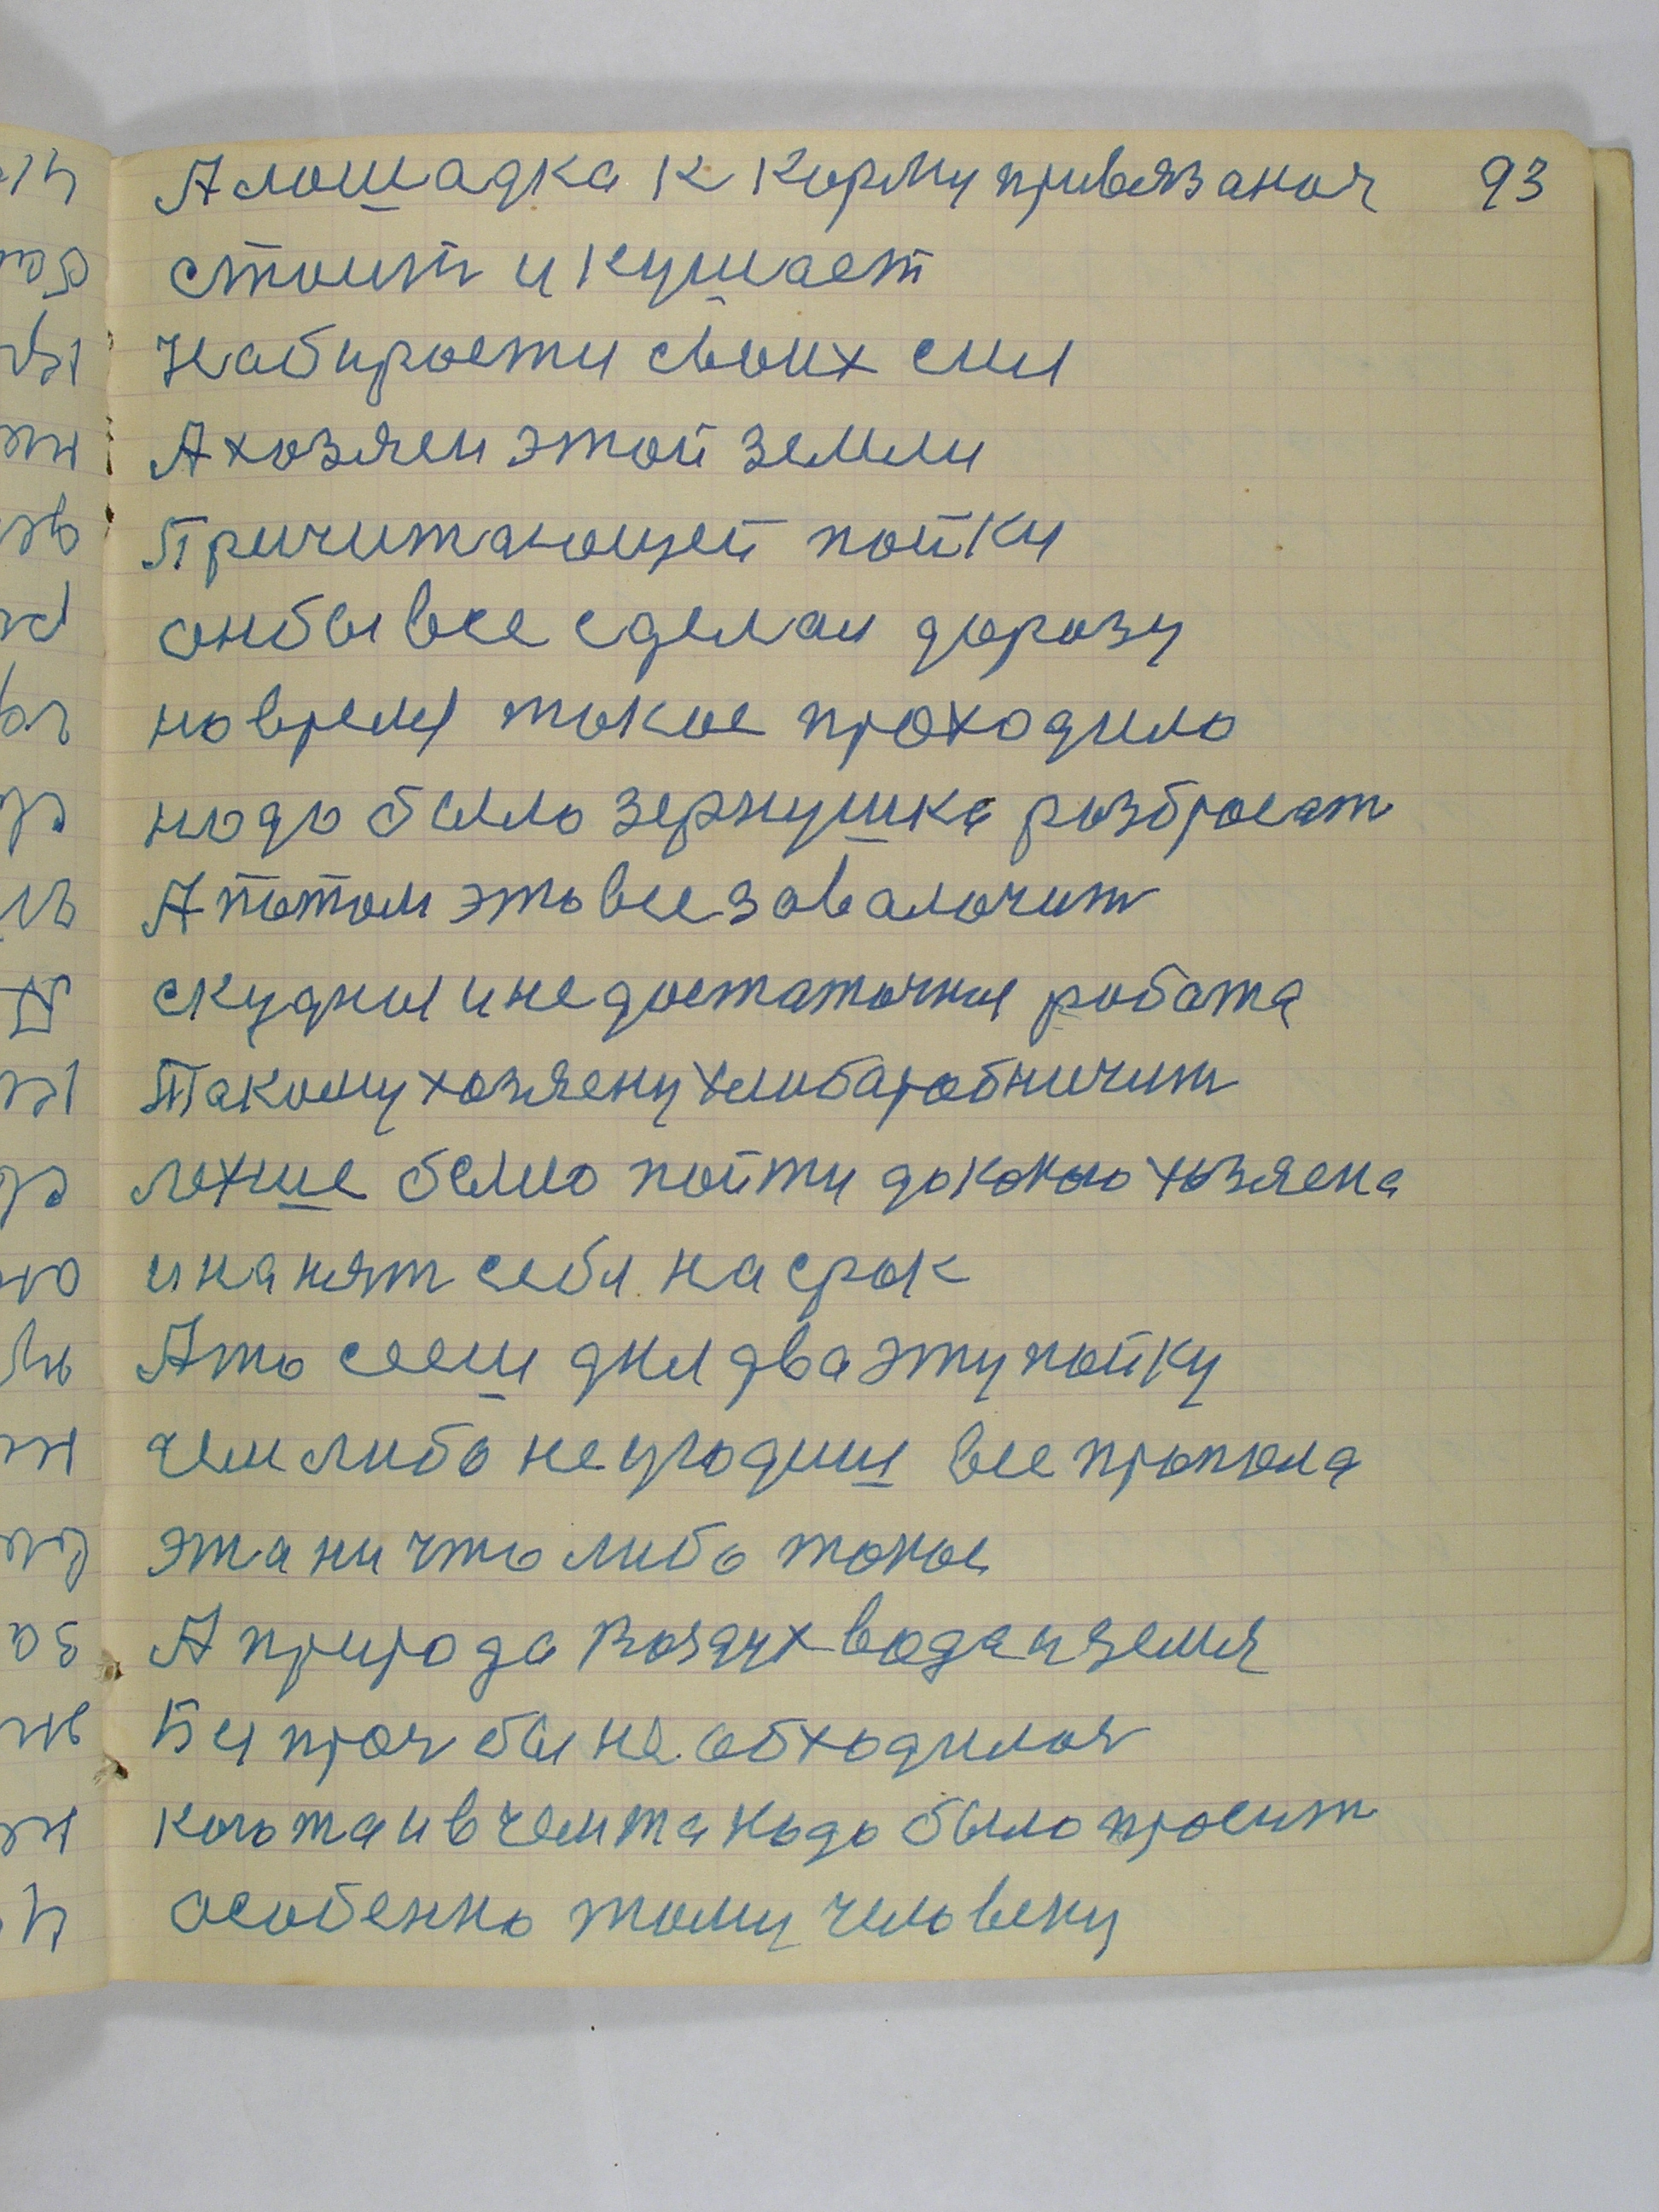 А лошадка к корму привязаноя 93
стоит и кушает
Набирости своих сил
А хозяен этой земли
Причитающей пойки
онбы все сделал доразу
но время токое проходило
нодо было зернушка розбросат
А потом это все заволочит
скудния и недостаточния робота
Такому хозяену хлибаробничит
лохше было пойти до коного хозяена
и нанят себя на срок
А то сееш дня два эту пойку
чем либо не угодиш все пропола
эта ни что либо токое
А природа воздух вода и земля
Бея проч бы не обходилоя
кого та и в чем та нодо было просит
особенно тому человеку